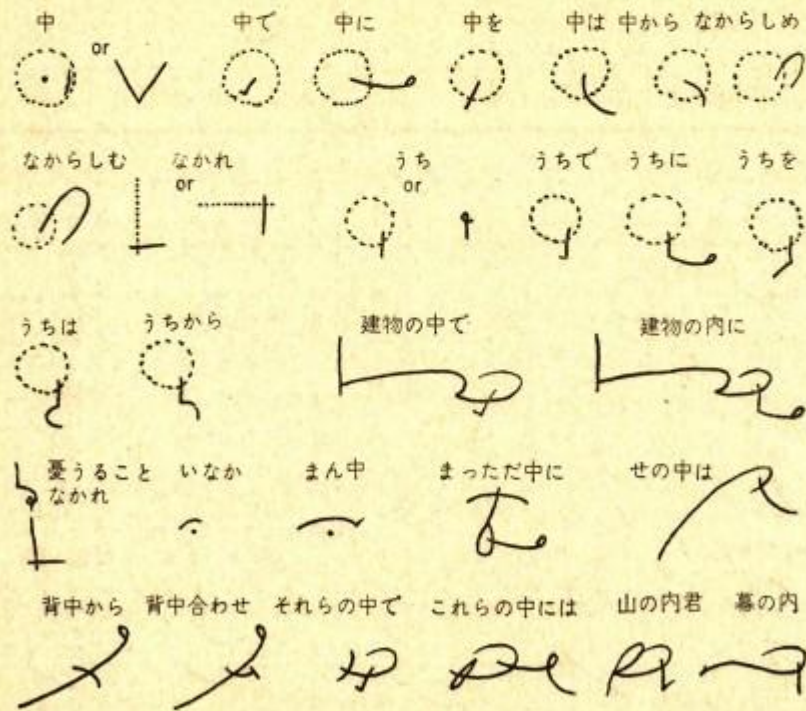 中 or 中で 中に 中を 中は 中から なからしめ
なからしむ なかれ or うち or うちで うちに うちを
うちは うちから 建物の中で 建物の内に
憂うること なかれ いなか まん中 まっただ中に せの中は
背中から 背中合わせ それらの中で これらの中には 山の内君 幕の内